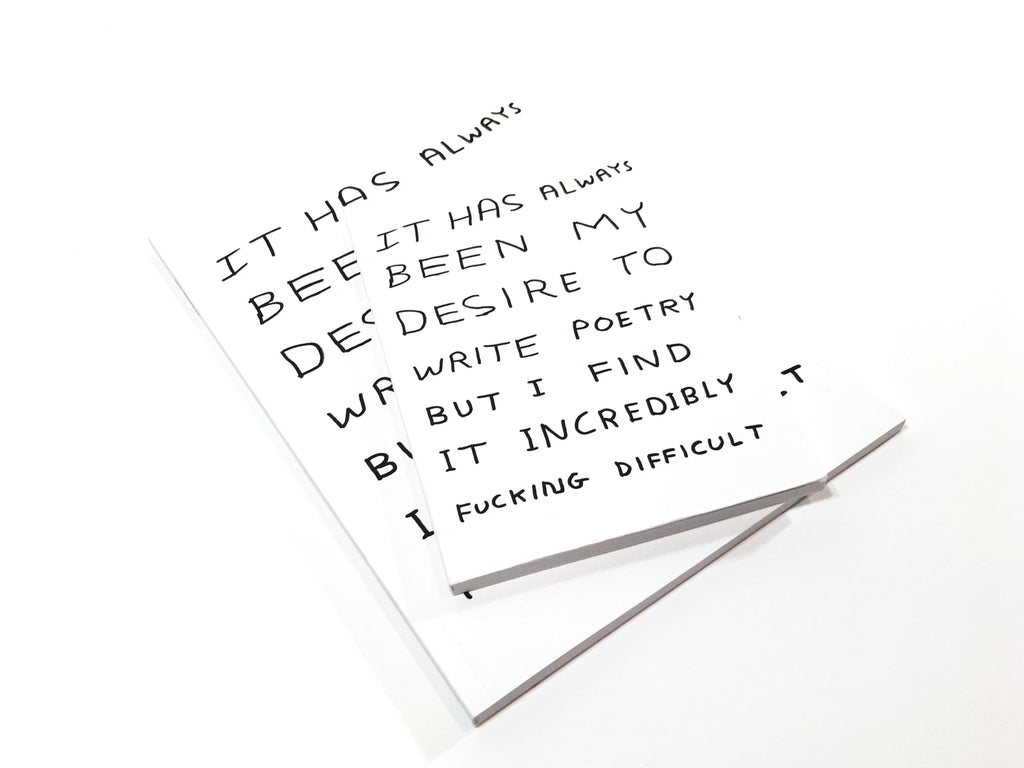 IT HAS ALWAYS
BEE
DES
WR
BU
I
IT HAS ALWAYS
BEEN MY
DESIRE TO
WRITE POETRY
BUT I FIND
IT INCREDIBLY
FUCKING DIFFICULT
.T